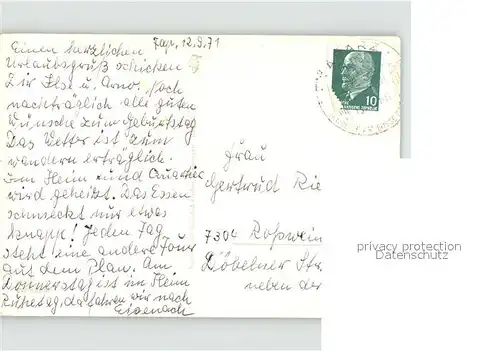 Zap, 12.9.71
Einen herzlichen
Urlaubsgruß schicken
Dir Ilse u. Arno. Noch
nachträglich alle guten
Wünsche zum Geburtstag
Das Wetter ist zum
wandern erträglich.
im Heim und Quartier
wird geheizt. Das Essen
schmeckt nur etwas
knapp! Jeden Tag
steht eine andere Tour
auf dem Plan. Am
Donnerstag ist im Heim
Ruhetag, da fahren wir nach
Eisenach
10
Frau
Gertrud Rie
7304 Roßwein
Döbelner Str.
neben der
privacy protection
Datenschutz